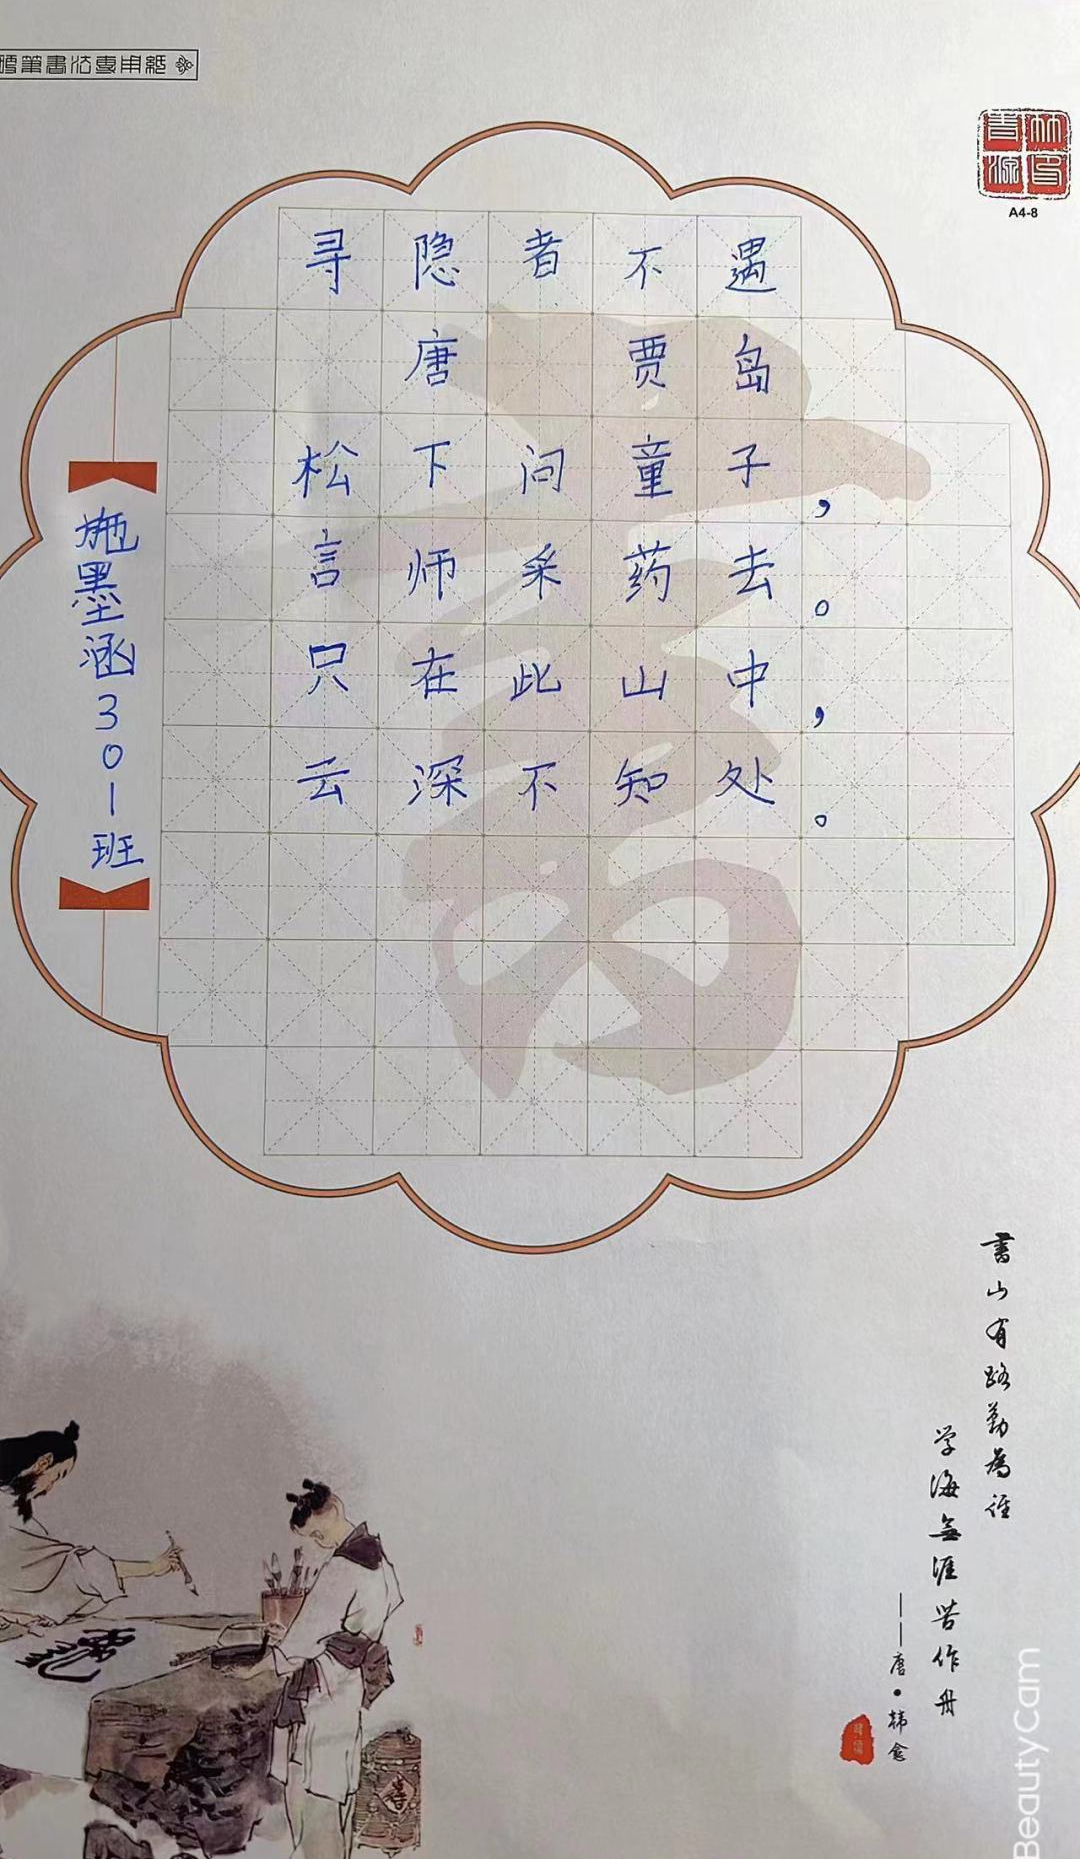 硬筆書法專用紙
A4-8
寻隐者不遇
唐 贾岛
松下问童子，
言师采药去。
只在此山中，
云深不知处。
施墨涵301班
書山有路勤為徑
学海無涯苦作舟
——唐·韩愈
BeautyCam